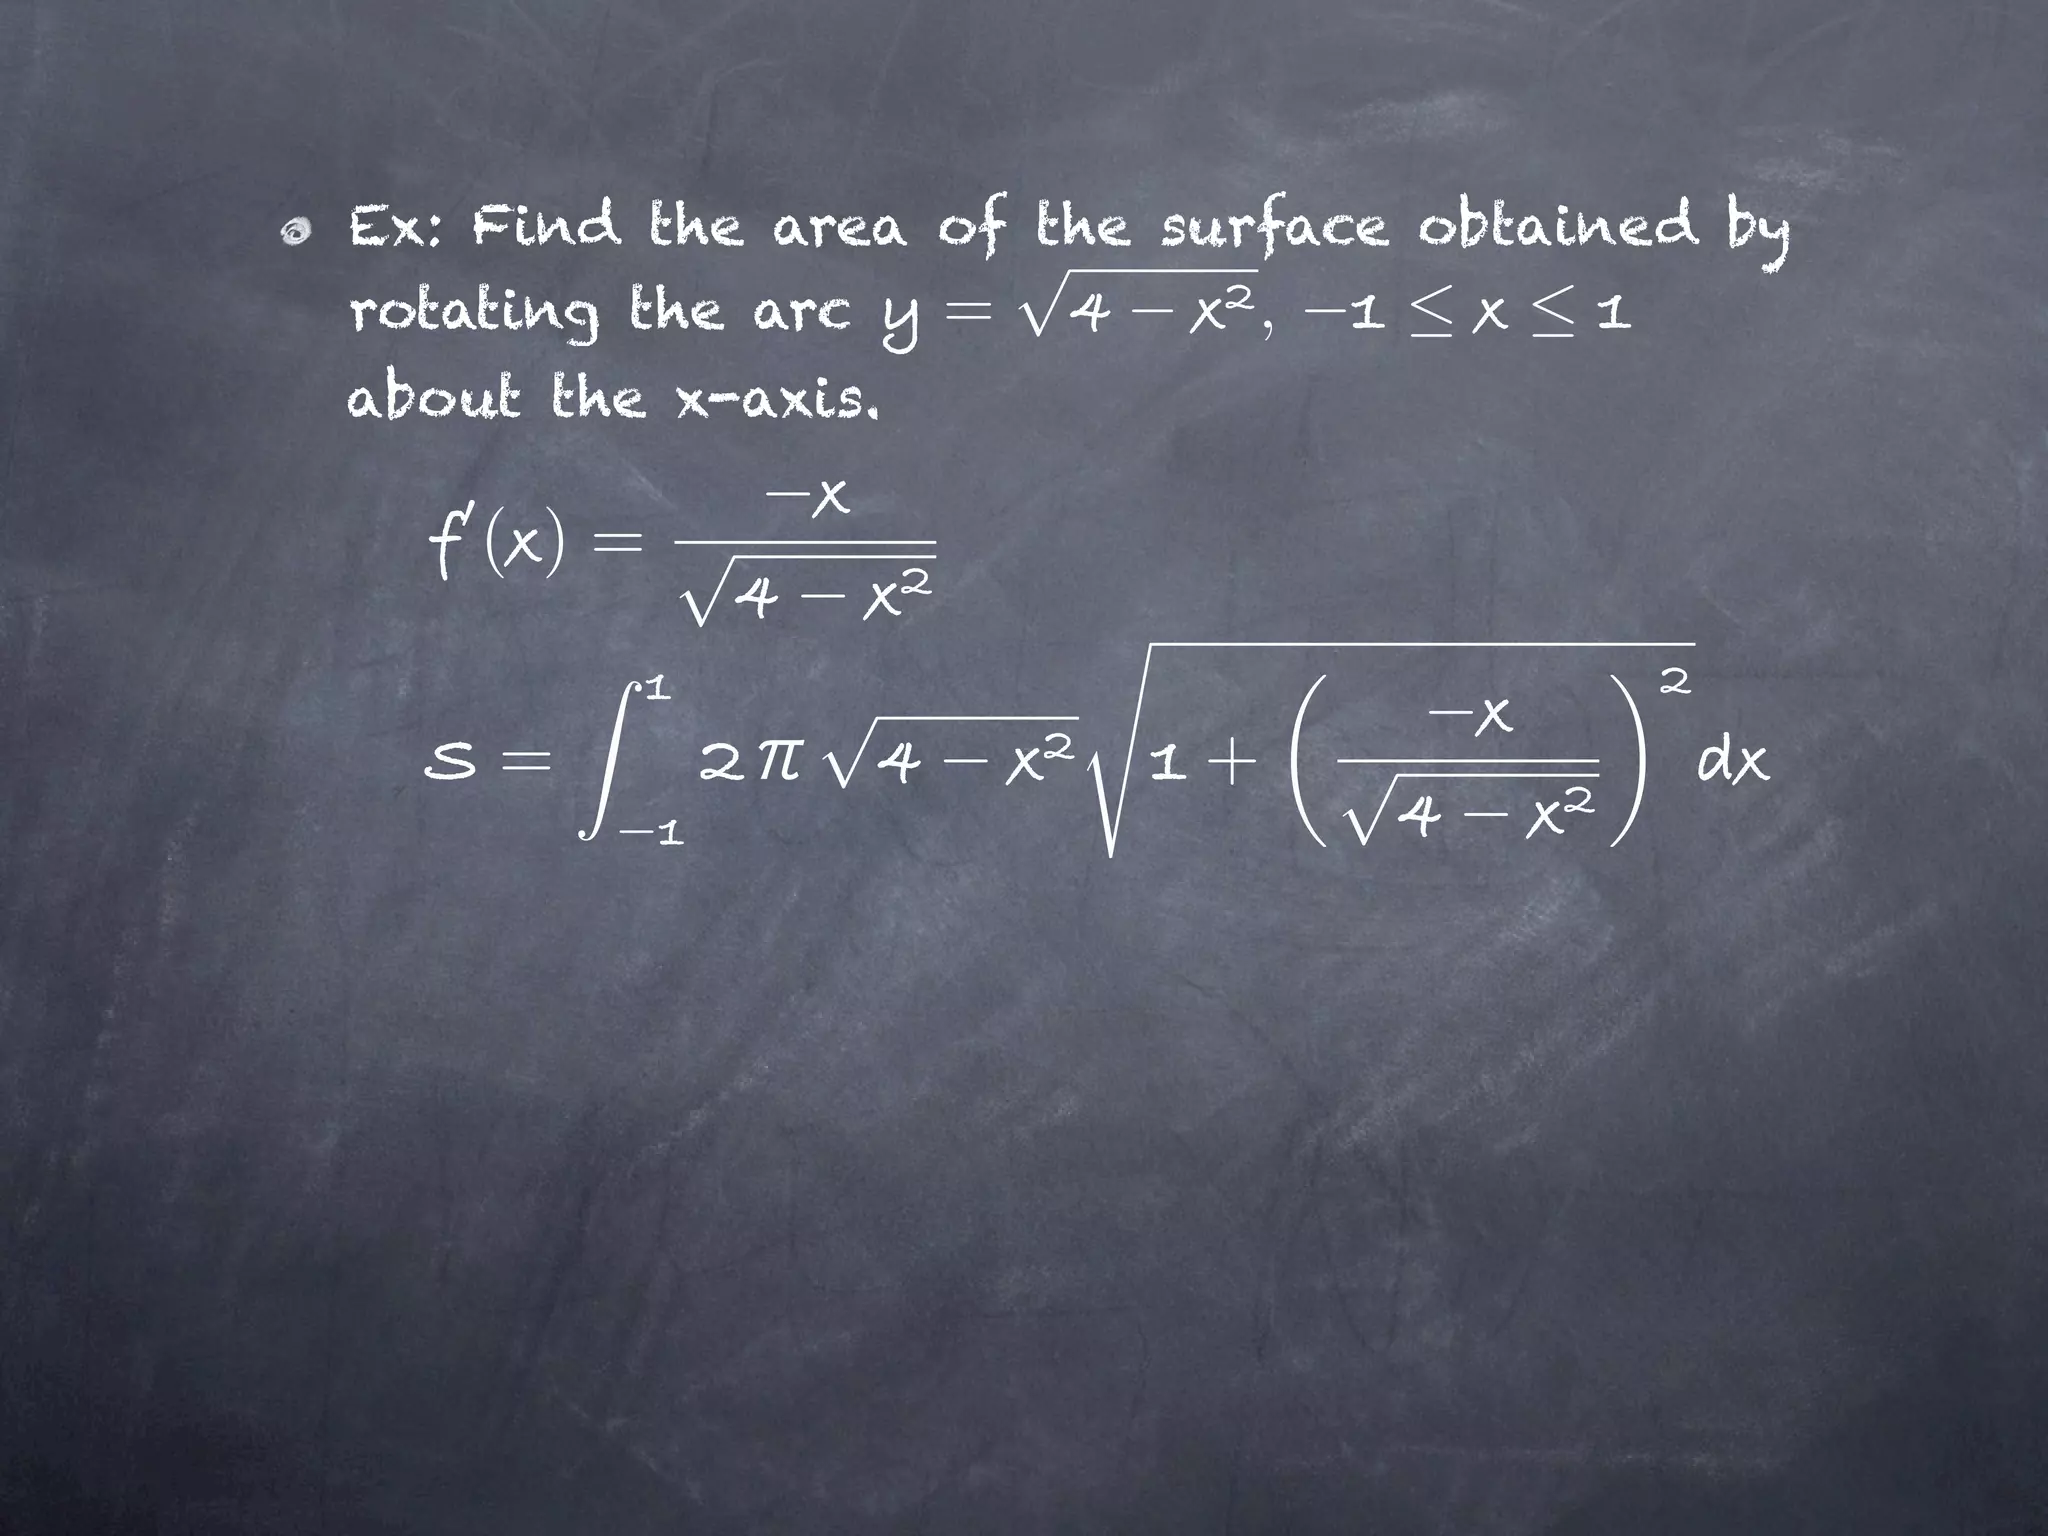 Ex: Find the area of the surface obtained by
rotating the arc y = √(4 − x²), −1 ≤ x ≤ 1
about the x-axis.
f′(x) = −x / √(4 − x²)
S = ∫₋₁¹ 2π √(4 − x²) √(1 + (−x / √(4 − x²))²) dx